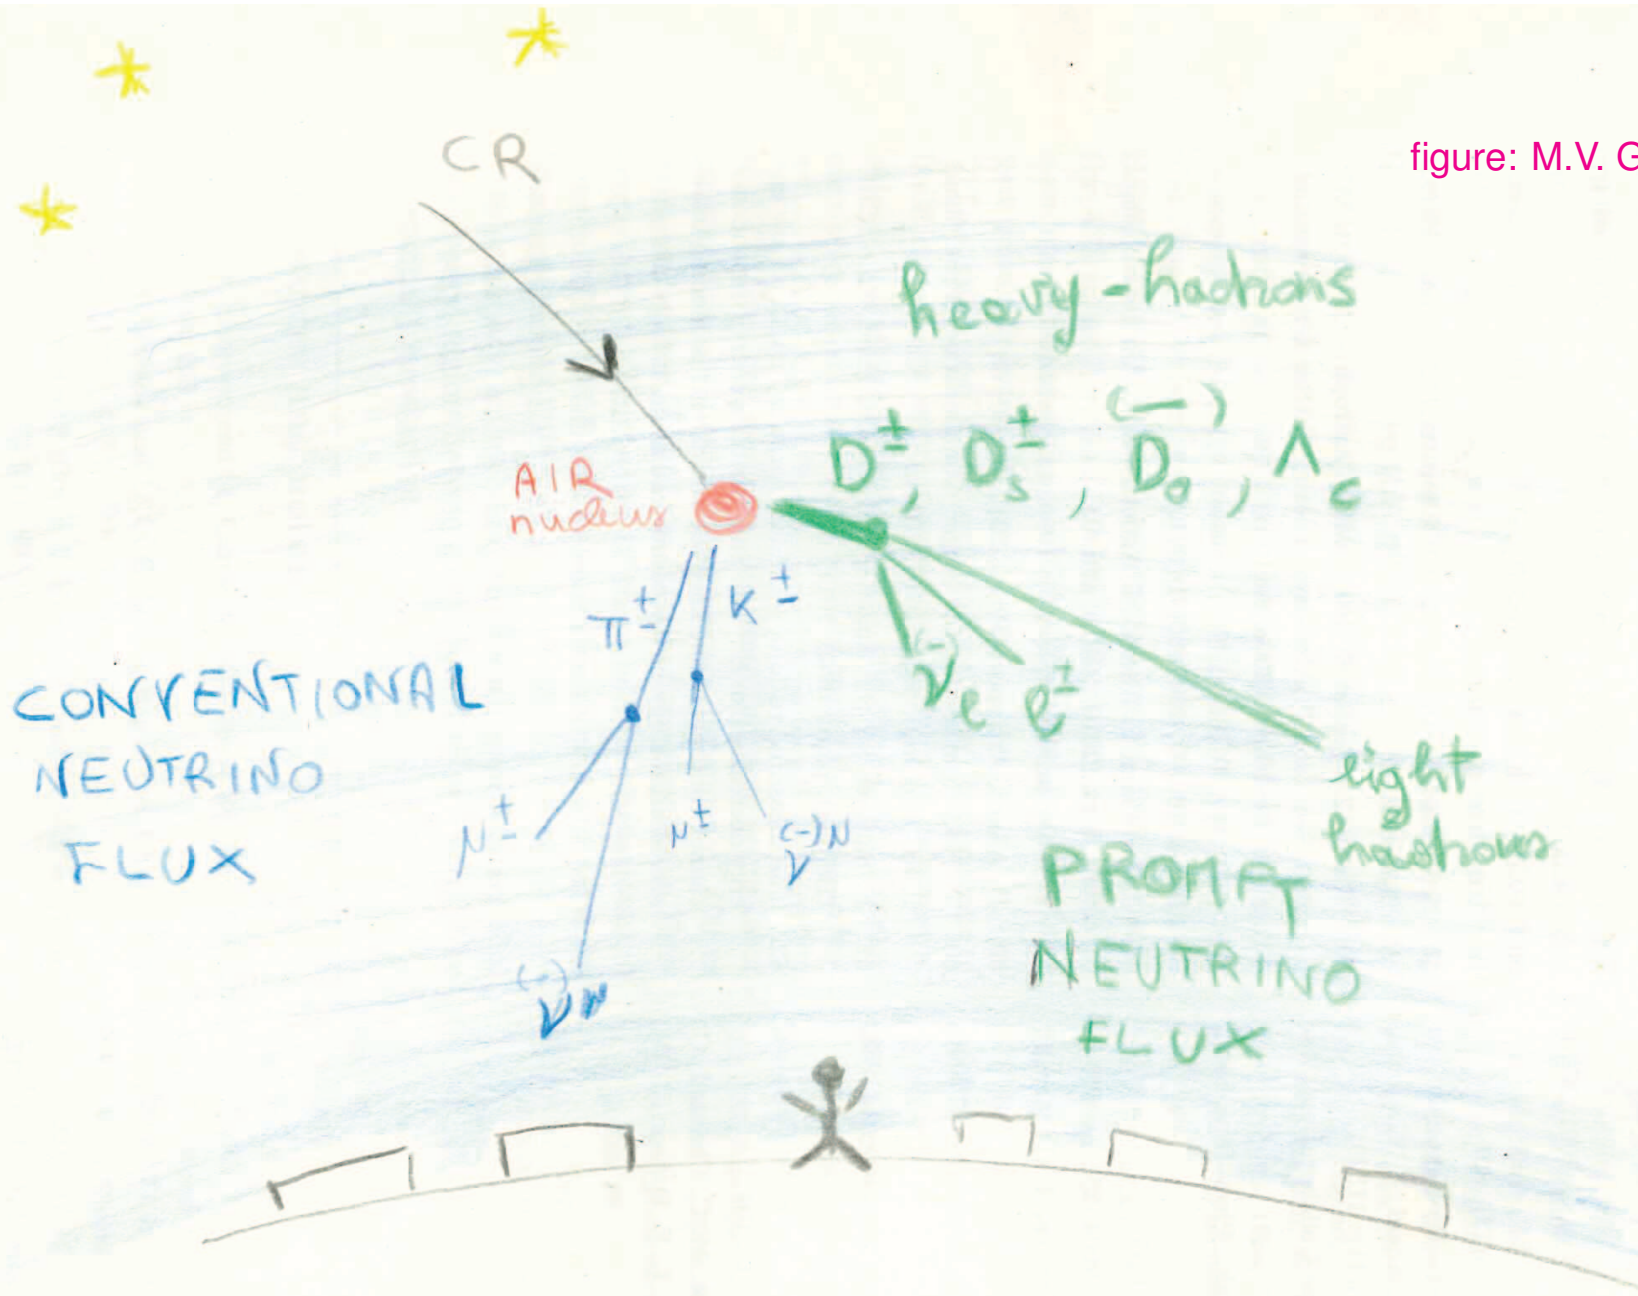 CR
figure: M.V. G
heavy-hadrons
D±, Ds±, (—)D0, Λc
AIR
nucleus
π±
K±
CONVENTIONAL
NEUTRINO
FLUX
(-)νe e±
light
hadrons
μ±
μ±
(-)νμ
PROMPT
NEUTRINO
FLUX
(-)νμ